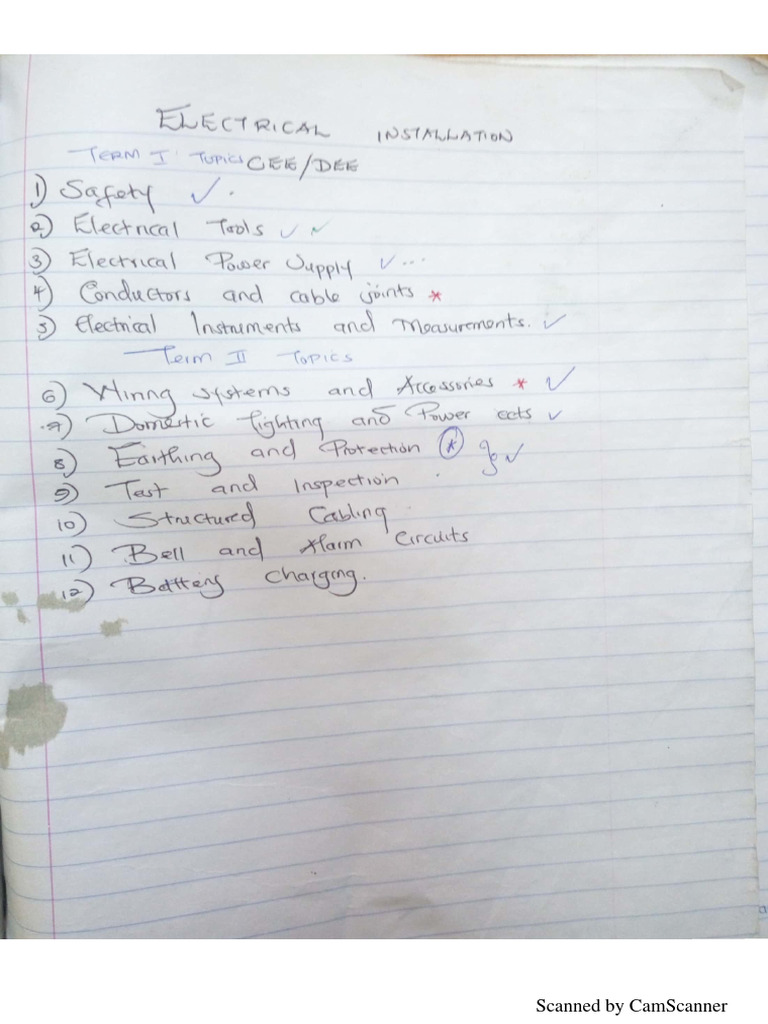 ELECTRICAL INSTALLATION
TERM I TOPICS CEE/DEE
1) Safety ✓.
2) Electrical Tools ✓
3) Electrical Power Supply ✓...
4) Conductors and cable joints *
5) Electrical Instruments and Measurements. ✓
Term II Topics
6) Wiring systems and Accessories * ✓
7) Domestic lighting and Power ccts ✓
8) Earthing and Protection * ✓
9) Test and Inspection
10) Structured Cabling
11) Bell and Alarm Circuits
12) Battery Charging.
Scanned by CamScanner